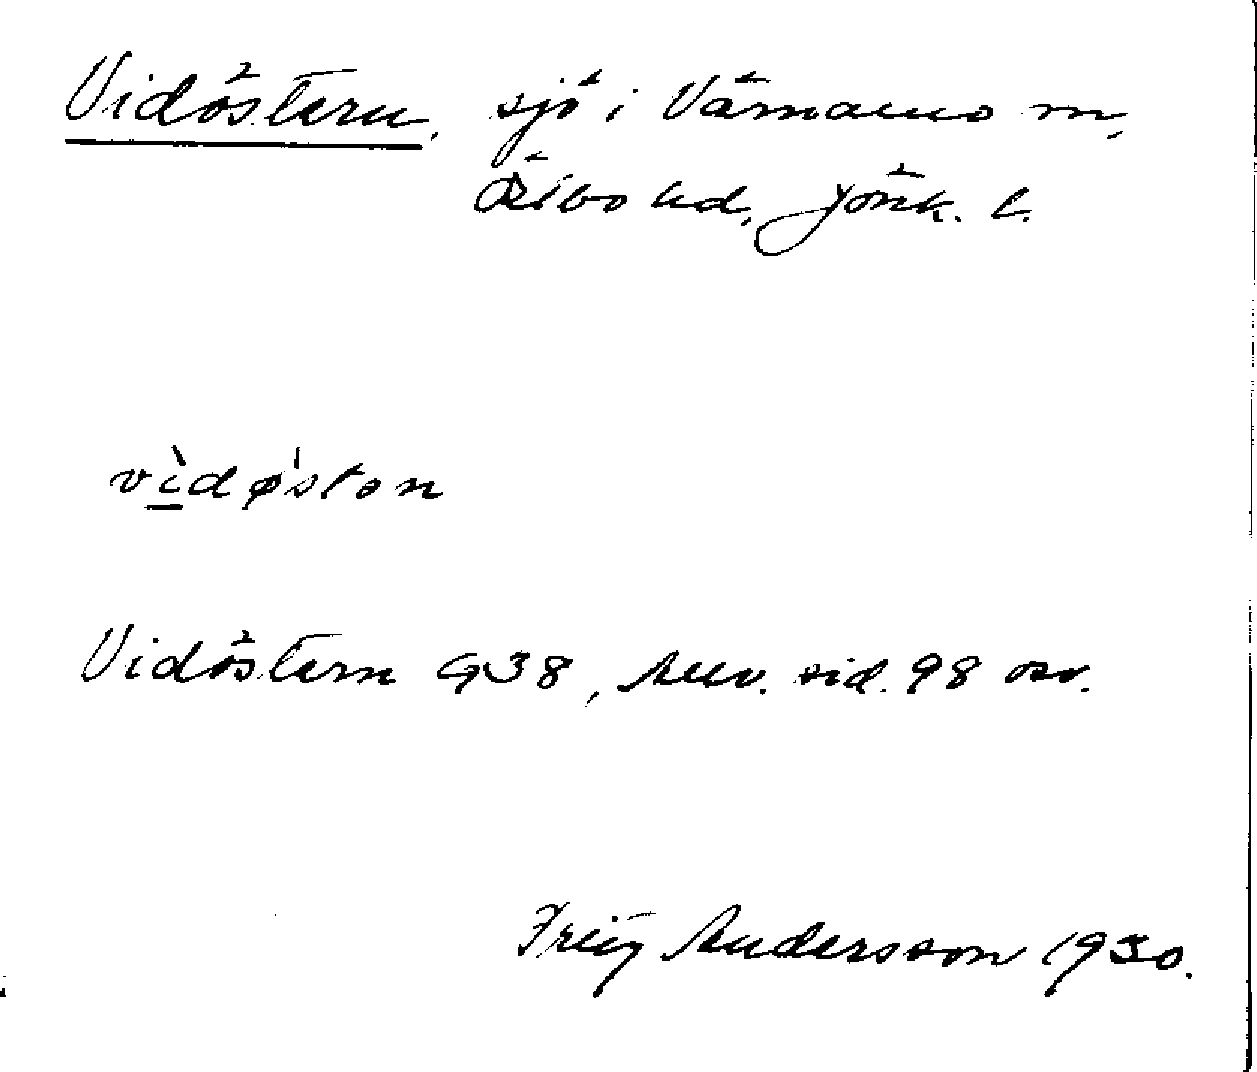 Vidöstern, sjö i Värnamo m,
Östbo hd, Jönk. l.
vìdǿstən
Vidöstern G38, Anv. sid. 98 osv.
Andersson 1930.